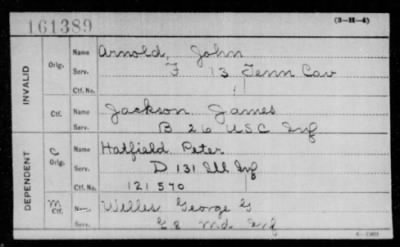 161389
(3-H-4)
INVALID
Orig.
Name Arnold, John
Serv. F 13 Tenn Cav
Ctf. No.
Ctf.
Name Jackson James
Serv. B 26 USC Inf
DEPENDENT
C Orig.
Name Hatfield Peter
Serv. D 131 Ill Inf
Ctf. No. 121570
M Ctf.
Name Willes George G
E 8 Md. Inf